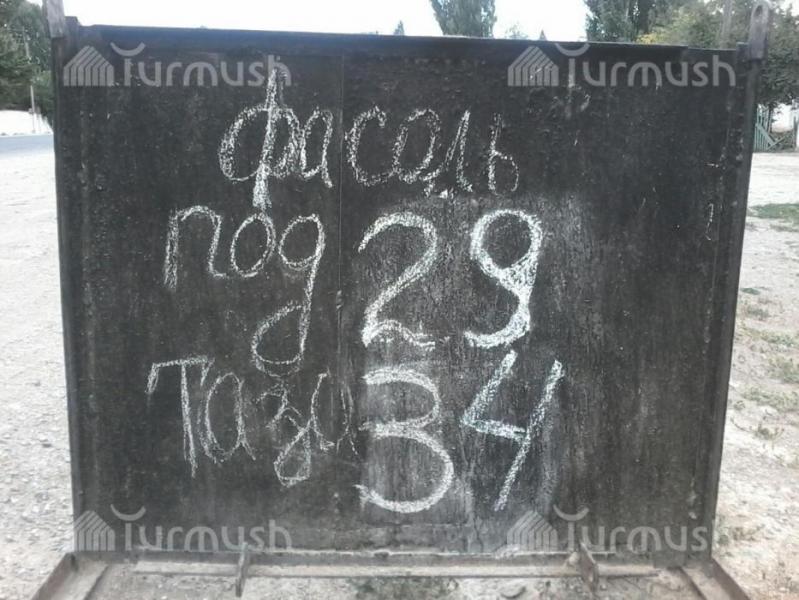 Turmush Turmush
фасоль
под 29
Тази 34
Turmush Turmush